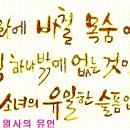 라에 바칠 목숨
하나밖에 없는 것
소녀의 유일한 슬픔
열사의 유언